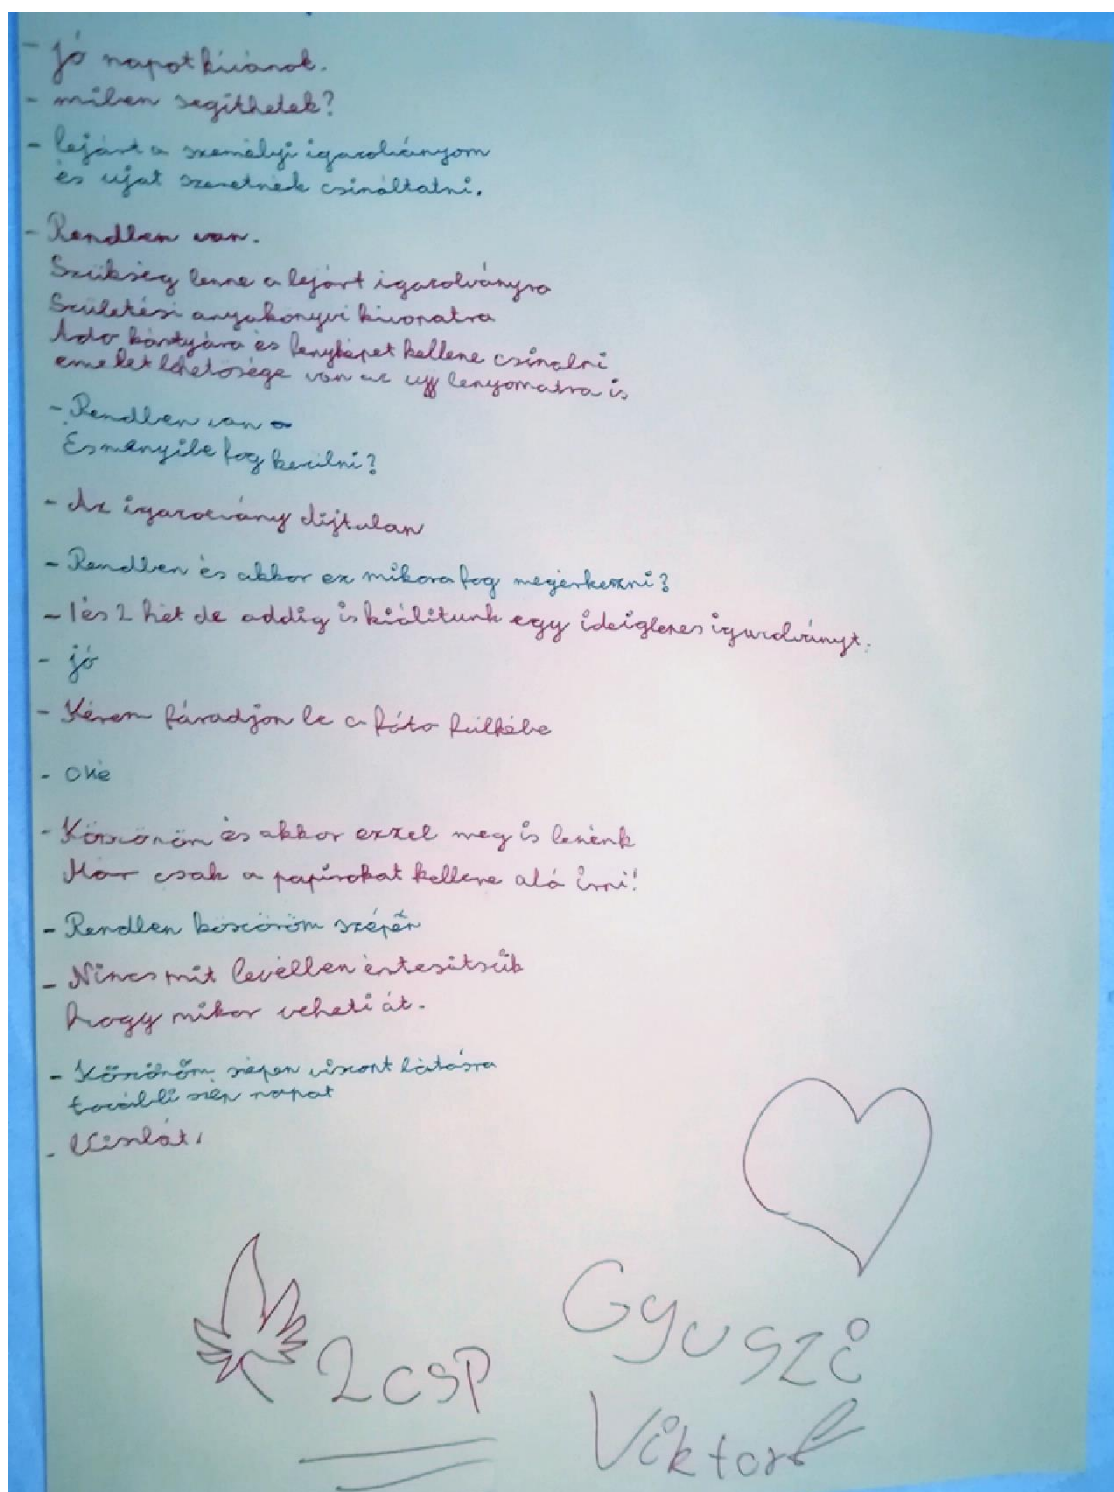 - jó napot kivánok.
- miben segithetek?
- lejárt a személyi igazolványom
és ujat szeretnék csináltatni.
- Rendben van.
Szükség lenne a lejárt igazolványra
Születési anyakönyvi kivonatra
Adó kártyára és fenyképet kellene csinálni
emelet lehetősége van az ujj lenyomatra is
- Rendben van
És menyibe fog kerülni?
- Az igazolvány díjtalan
- Rendben és akkor ez mikora fog megérkezni?
- 1 és 2 hét de addig is kiálitunk egy ideiglenes igazolványt.
- jó
- Kérem fáradjon be a fóto fülkébe
- oké
- Köszönöm és akkor ezzel meg is lenénk
Már csak a papírokat kellene alá irni!
- Rendben köszönöm szépen
- Nincs mit levélben értesitsük
hogy mikor veheti át.
- Köszönöm szépen viszont látásra
további szép napat
- Viszlát!
2csp
Gyuszi
Viktor